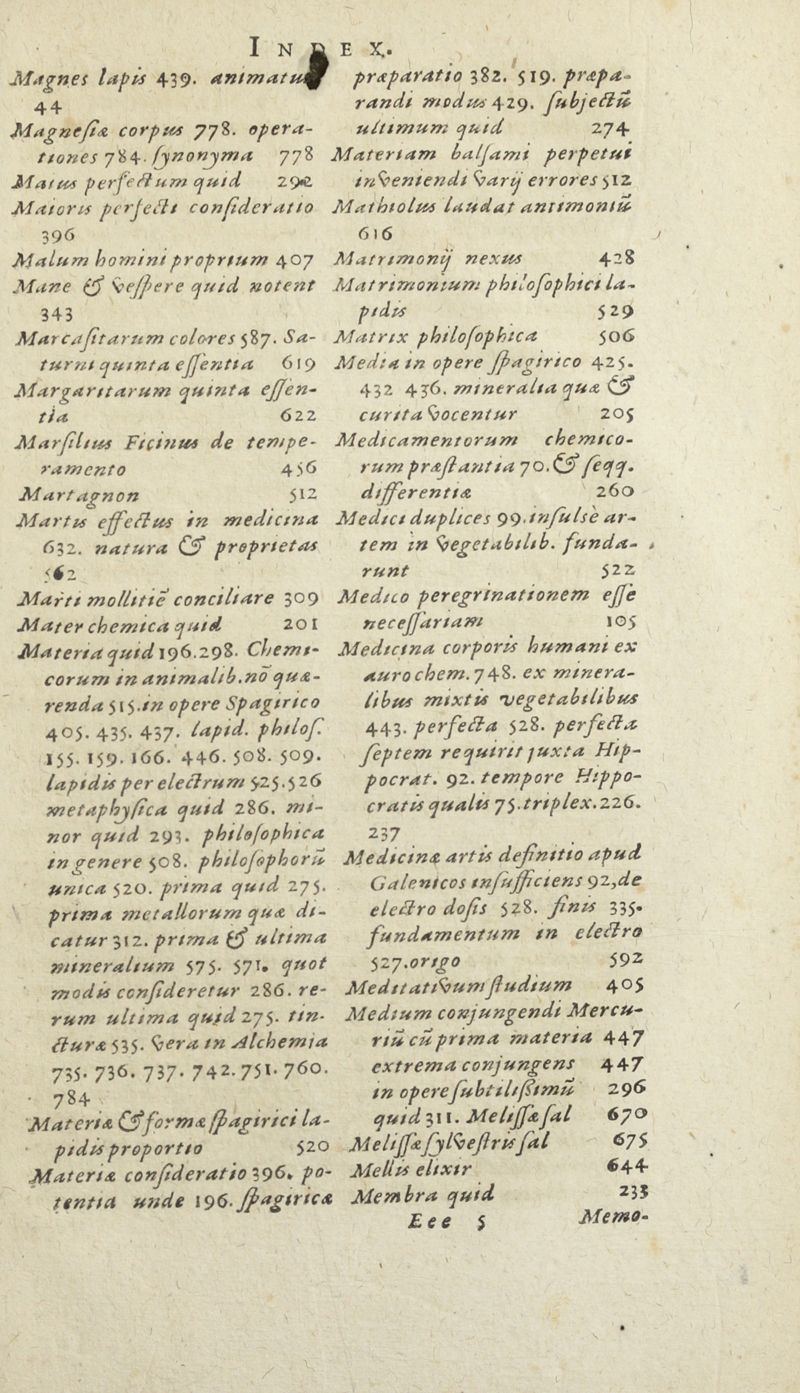 INDEX.
Magnes lapis 439. animatus
44
Magnesiæ corpus 778. opera-
tiones 784. synonyma 778
Maius perfectum quid 292
Maioris perfecti consideratio
396
Malum homini proprium 407
Mane & vespere quid notent
343
Marcasitarum colores 587. Sa-
turni quinta essentia 619
Margaritarum quinta essen-
tia 622
Marsilius Ficinus de tempe-
ramento 456
Martagnon 512
Martis effectus in medicina
632. natura & proprietas
562
Marti mollitiē conciliare 309
Mater chemica quid 201
Materia quid 196.298. Chemi-
corum in animalib. nō quæ-
renda 515. in opere Spagirico
405. 435. 437. lapid. philos.
155. 159. 166. 446. 508. 509.
lapidis per electrum 525.526
metaphysica quid 286. mi-
nor quid 293. philosophica
in genere 508. philosophorū
unica 520. prima quid 275.
prima metallorum quæ di-
catur 312. prima & ultima
mineralium 575. 571. quot
modis consideretur 286. re-
rum ultima quid 275. tin-
cturæ 535. vera in Alchemia
735. 736. 737. 742. 751. 760.
784
Materiæ & formæ spagirici la-
pidis proportio 520
Materiæ consideratio 396. po-
tentia unde 196. spagiricæ
præparatio 382. 519. præpa-
randi modus 429. subjectū
ultimum quid 274
Materiam balsami perpetui
inveniendi varij errores 512
Mathiolus laudat antimoniū
616
Matrimonij nexus 428
Matrimonium philosophici la-
pidis 529
Matrix philosophica 506
Media in opere spagirico 425.
432 436. mineralia quæ &
cur ita vocentur 205
Medicamentorum chemico-
rum præstantia 70. & seqq.
differentiæ 260
Medici duplices 99. insulsè ar-
tem in vegetabilib. funda-
runt 522
Medico peregrinationem esse
necessariam 105
Medicina corporis humani ex
auro chem. 748. ex minera-
libus mixtis vegetabilibus
443. perfecta 528. perfecta
septem requirit juxta Hip-
pocrat. 92. tempore Hippo-
cratis qualis 75. triplex. 226.
237
Medicinæ artis definitio apud
Galenicos insufficiens 92, de
electro dosis 528. finis 335.
fundamentum in electro
527. origo 592
Meditativum studium 405
Medium conjungendi Mercu-
riū cū prima materia 447
extrema conjungens 447
in opere subtilissimū 296
quid 311. Melissæ sal 670
Melissæ sylvestris sal 675
Mellis elixir 644
Membra quid 235
Eee 5 Memo-